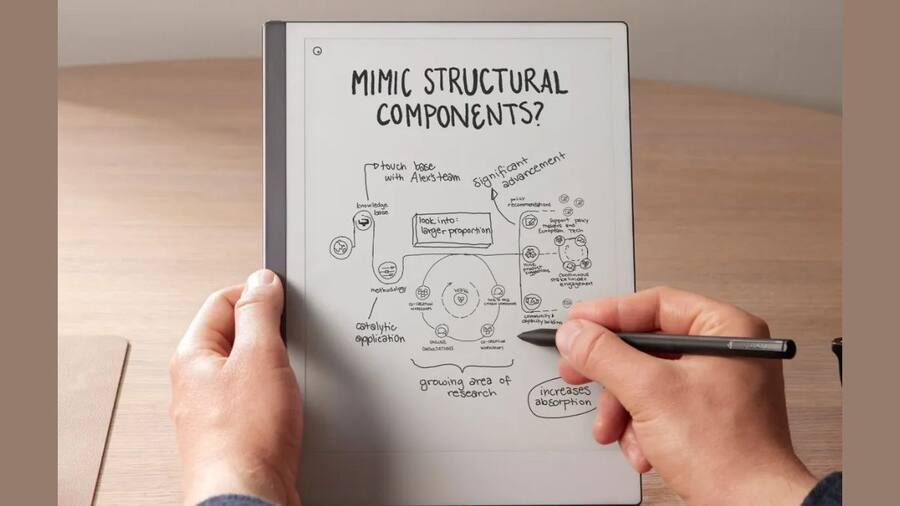 MIMIC STRUCTURAL
COMPONENTS?
touch base
with Alex's team
significant
advancement
knowledge
base
policy
recommendations
look into:
larger proportion
support policy
makers and
European Tech
methodology
continuous
stakeholder
engagement
co-creation
workshops
community &
capacity building
catalytic
application
online
consultations
co-creation
workshops
growing area of
research
increases
absorption